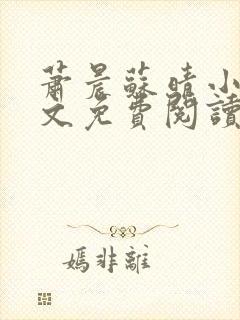 蕭晨蘇晴小
文免費閱讀
嫣非離